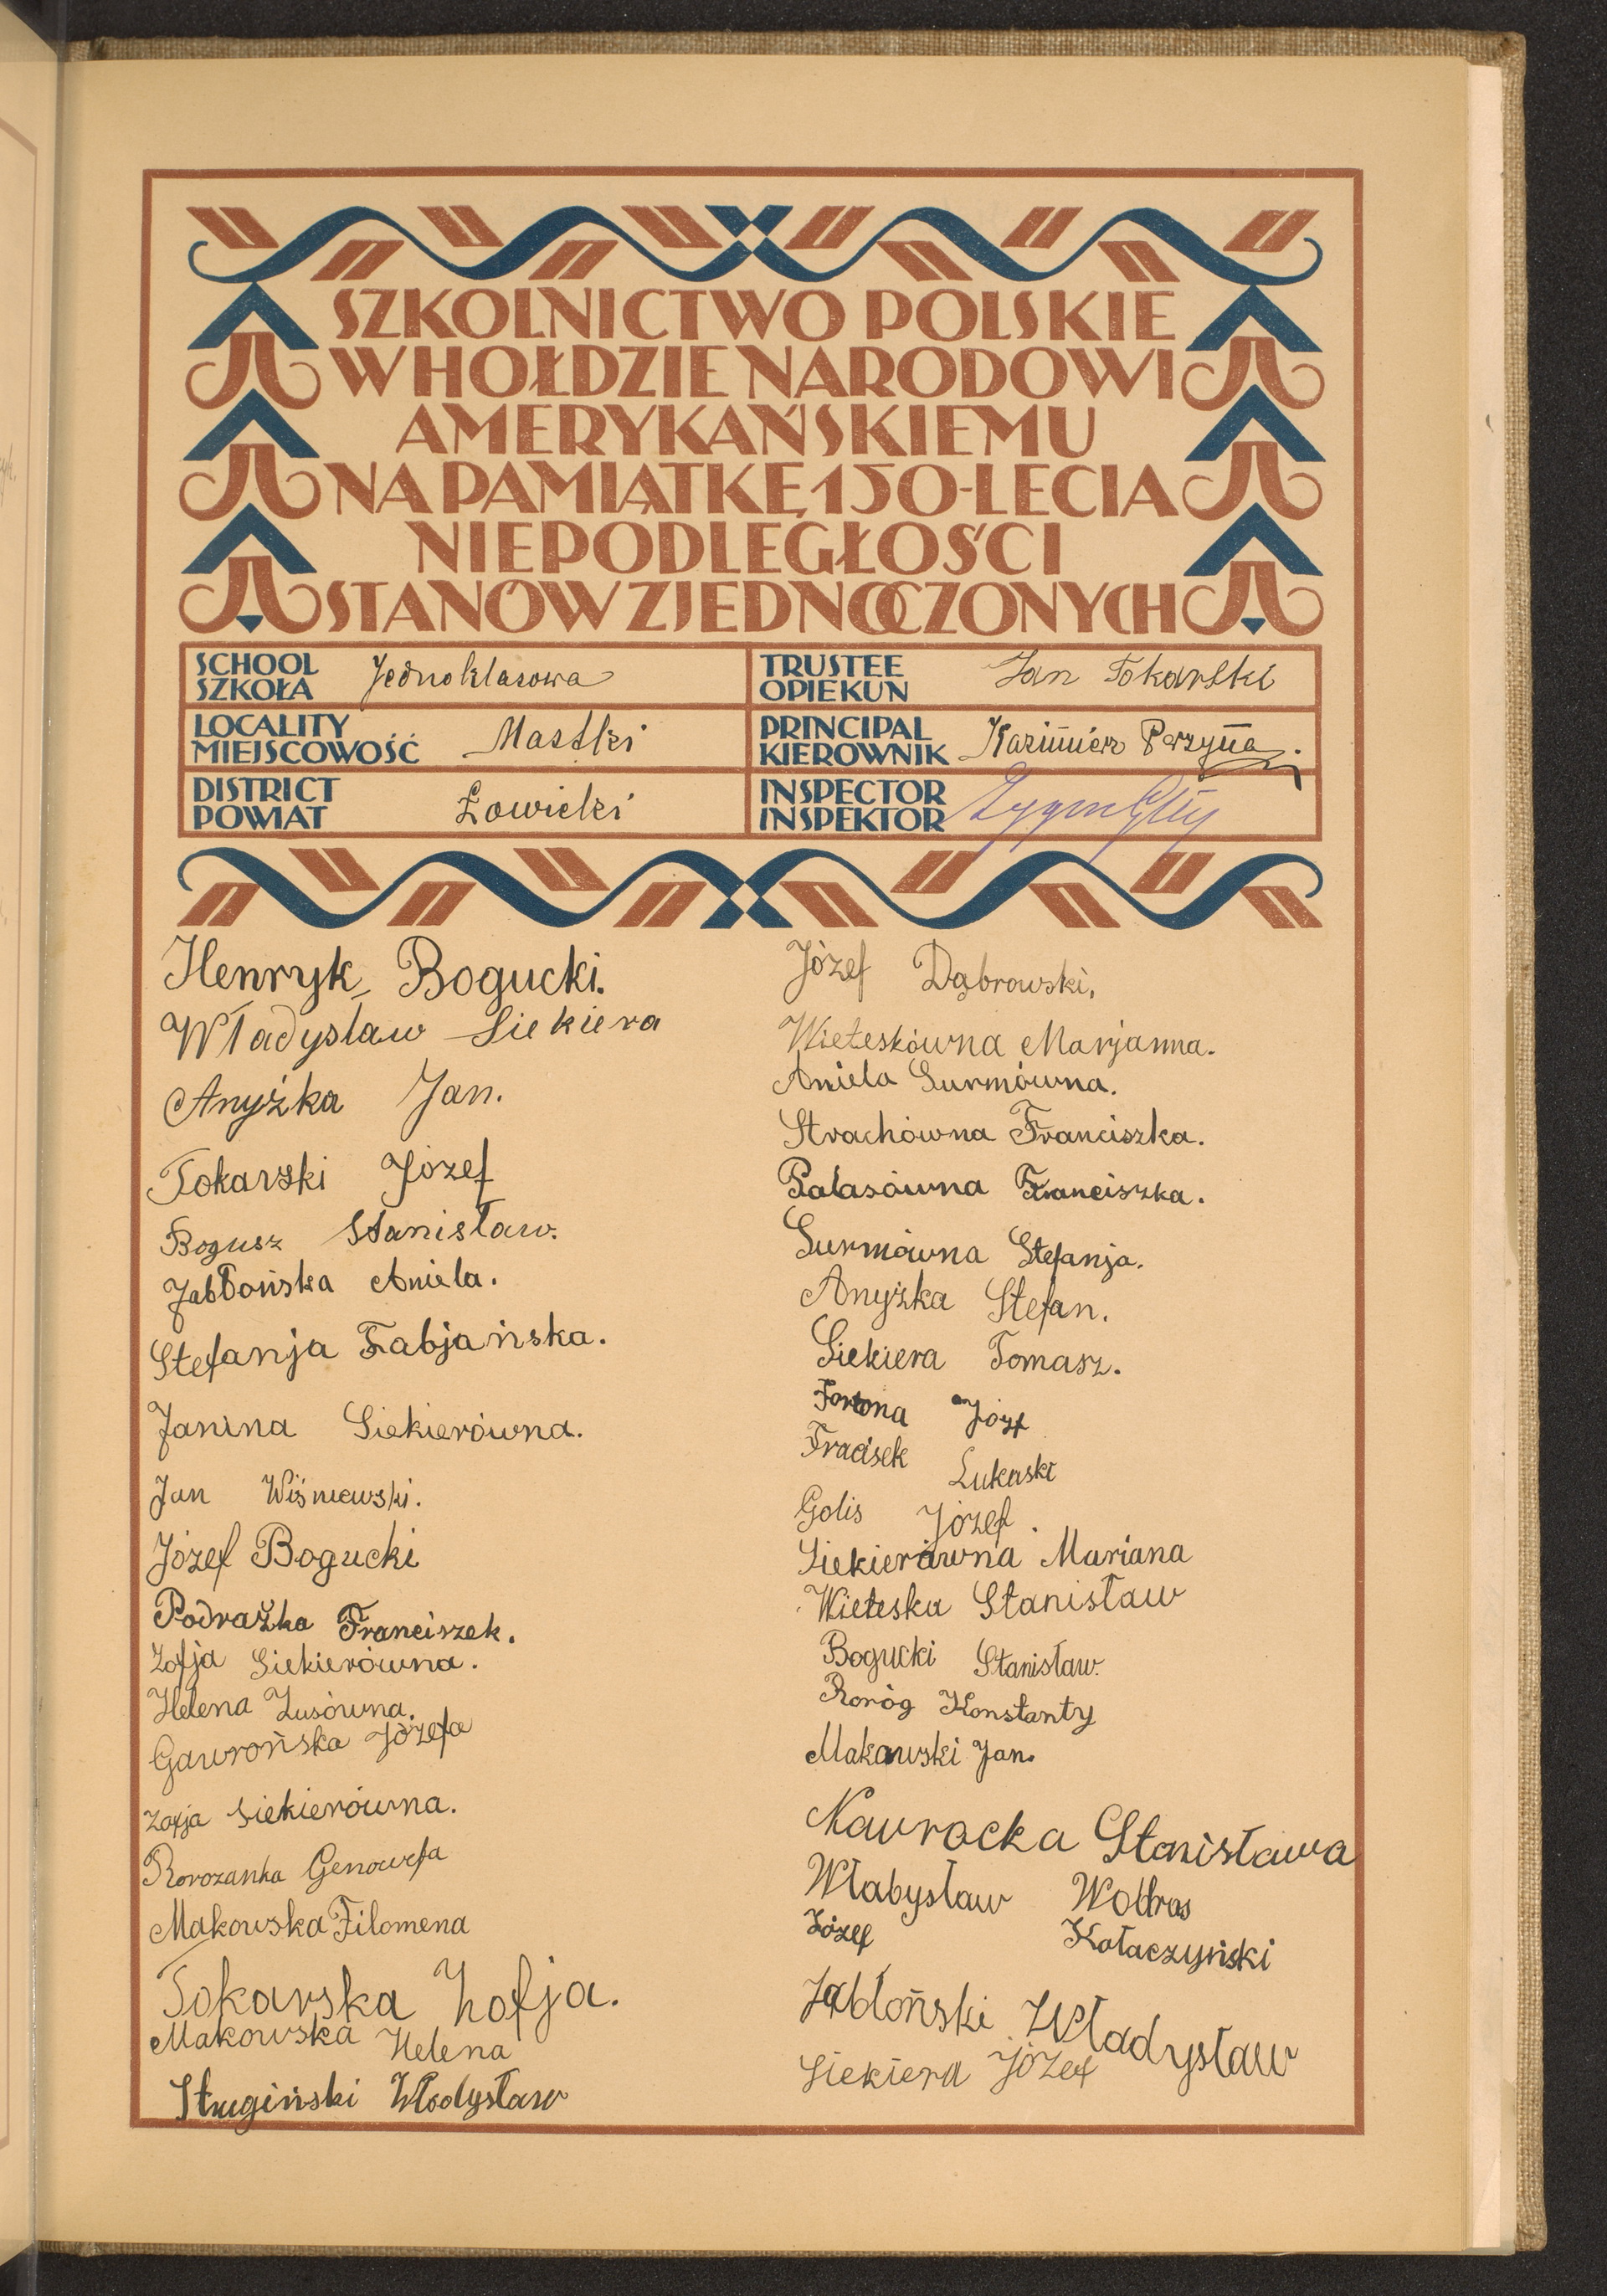 SZKOLNICTWO POLSKIE
W HOŁDZIE NARODOWI
AMERYKAŃSKIEMU
NA PAMIĄTKĘ 150-LECIA
NIEPODLEGŁOŚCI
STANÓW ZJEDNOCZONYCH
SCHOOL
SZKOŁA
Jednoklasowa
TRUSTEE
OPIEKUN
Jan Tokarski
LOCALITY
MIEJSCOWOŚĆ
Mastki
PRINCIPAL
KIEROWNIK
Kazimierz Perzyna.
DISTRICT
POWIAT
Łowicki
INSPECTOR
INSPEKTOR
Henryk Bogucki.
Władysław Siekiera
Anyżka Jan.
Tokarski Józef
Bogusz Stanisław.
Jabłońska Aniela.
Stefanja Fabjańska.
Janina Siekierówna.
Jan Wiśniewski.
Józef Bogucki
Podrażka Franciszek.
Zofja Siekierówna.
Helena Zusówna.
Gawrońska Józefa
Zofja Siekierówna.
Rorozanka Genowefa
Makowska Filomena
Tokarska Zofja.
Makowska Helena
Strugiński Włodysław
Józef Dąbrowski.
Wieteskówna Marjanna.
Aniela Surmówna.
Strachówna Franciszka.
Pałasówna Franciszka.
Surmówna Stefanja.
Anyżka Stefan.
Siekiera Tomasz.
Fortona Józf
Fracisek Lukaski
Golis Józef.
Siekierówna Mariana
Wieteska Stanisław
Bogucki Stanisław.
Roróg Konstanty
Makowski Jan.
Nawrocka Stanisława
Włabysław
Józef Kołaczyński
Jabłoński Władysław
Siekiera Józef